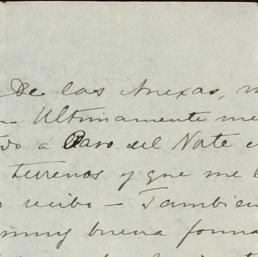 De las Anexas,
Ultimamente me
á Paso del Norte
terrenos y que me
recibo - Tambien
muy buena forma